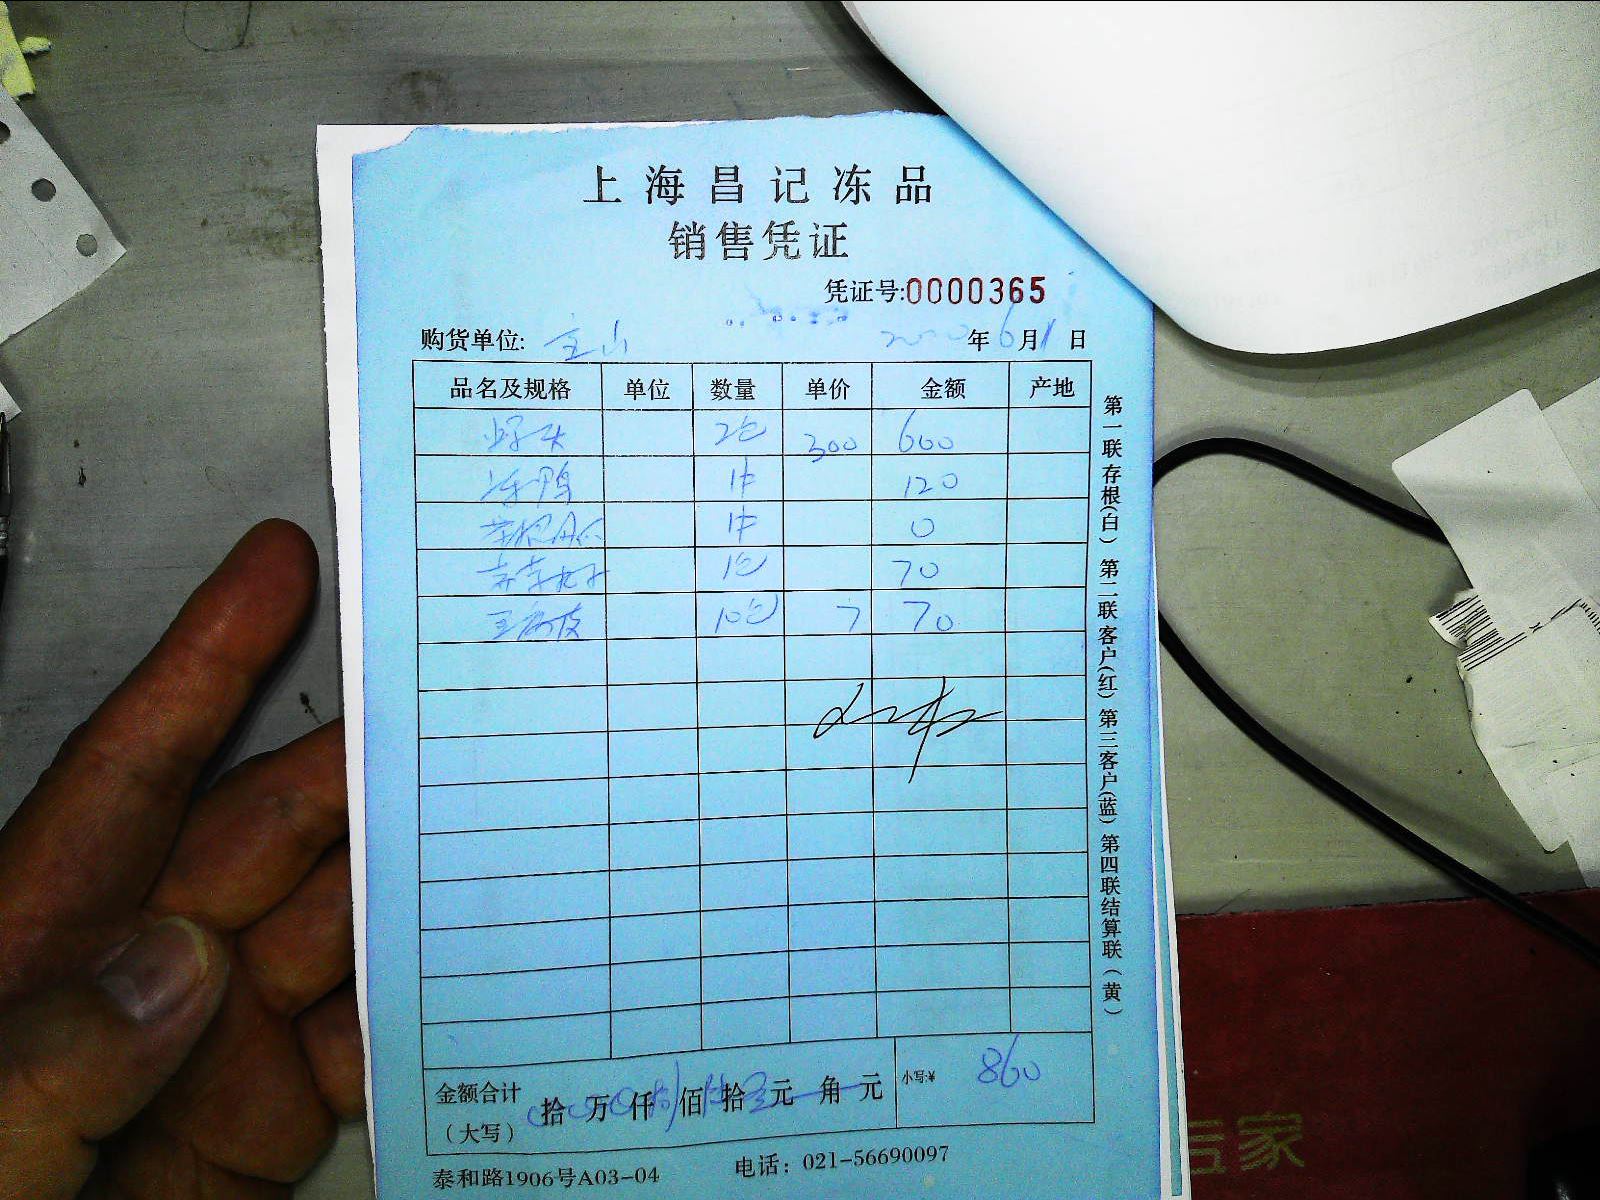 上海昌记冻品
销售凭证
凭证号:0000365
购货单位: 宝山 2020年6月1日
品名及规格 单位 数量 单价 金额 产地
2包 300 600
冻鸭 1件 120
1件 0
1包 70
10包 7 70
第一联存根(白) 第二联客户(红) 第三客户(蓝) 第四联结算联(黄)
金额合计 拾 万 仟 佰 拾 元 角 元 小写:¥ 860
(大写)
泰和路1906号A03-04 电话: 021-56690097
言家